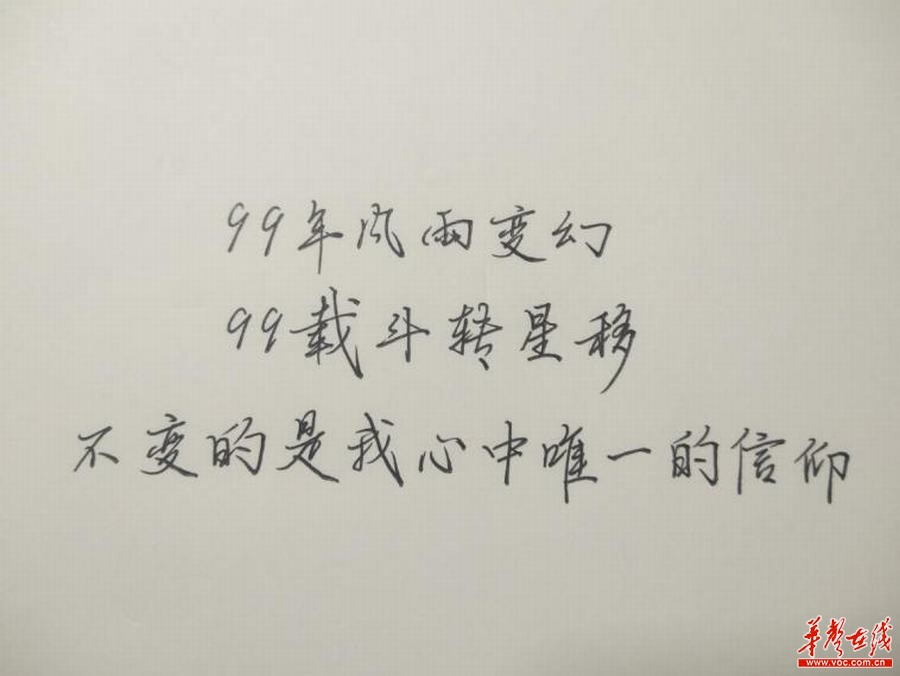 99年风雨变幻
99载斗转星移
不变的是我心中唯一的信仰
华声在线
www.voc.com.cn